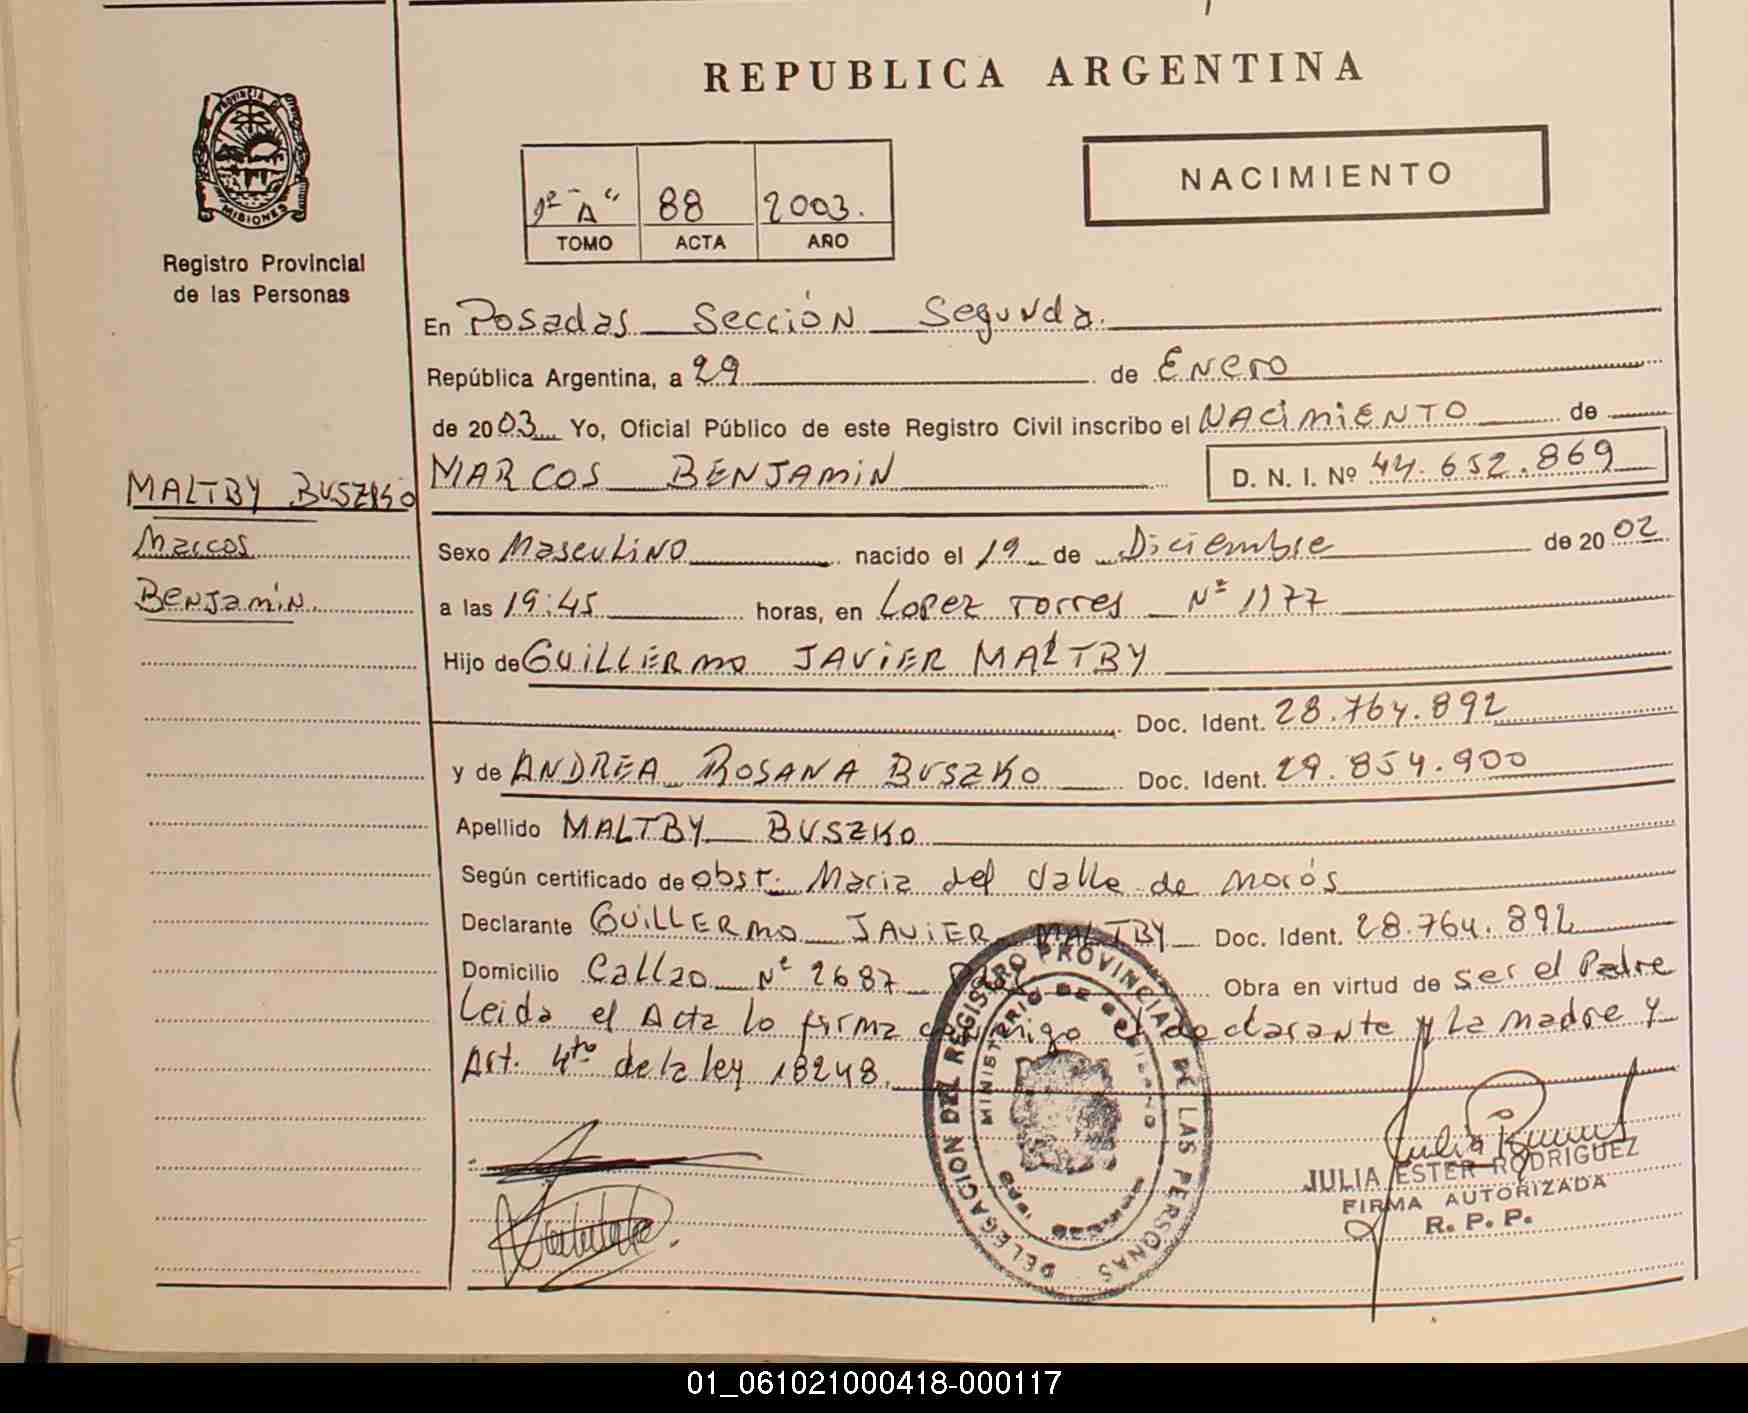 REPUBLICA ARGENTINA
PROVINCIA DE
MISIONES
Registro Provincial
de las Personas
NACIMIENTO
"A" 88 2003.
TOMO ACTA AÑO
En Posadas Sección Segunda.
República Argentina, a 29 de Enero
de 2003 Yo, Oficial Público de este Registro Civil inscribo el NACIMIENTO de
MARCOS BENJAMIN D. N. I. Nº 44.652.869
MALTBY BUSZKO
Marcos
Benjamin.
Sexo Masculino nacido el 19 de Diciembre de 2002
a las 19:45 horas, en Lopez Torres Nº 1177
Hijo de GUILLERMO JAVIER MALTBY
Doc. Ident. 28.764.892
y de ANDREA ROSANA BUSZKO Doc. Ident. 29.854.900
Apellido MALTBY BUSZKO
Según certificado de obst. Maria del Valle de Morós
Declarante GUILLERMO JAVIER MALTBY Doc. Ident. 28.764.892
Domicilio Callao Nº 2687 Obra en virtud de ser el Padre
Leida el Acta lo firma conmigo el declarante y la madre y
Art. 4to de la ley 18248.
DELEGACION DEL REGISTRO PROVINCIAL DE LAS PERSONAS
MINISTERIO DE GOBIERNO
JULIA ESTER RODRIGUEZ
FIRMA AUTORIZADA
R. P. P.
01_061021000418-000117